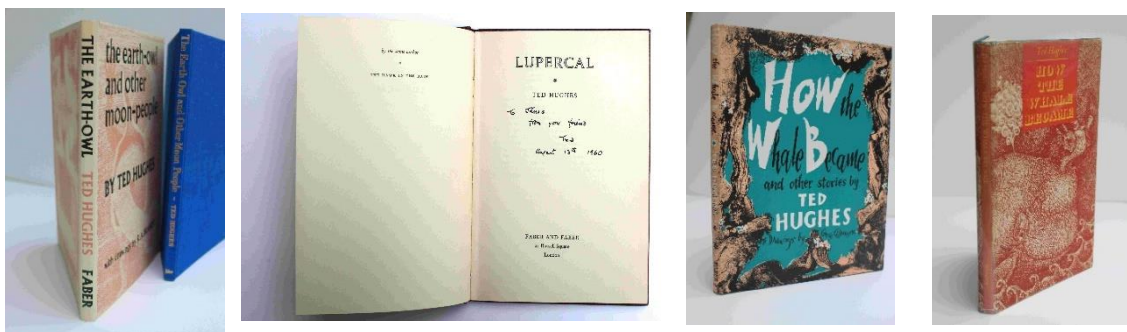 THE EARTH-OWL TED HUGHES FABER
the earth-owl
and other
moon-people
BY TED HUGHES
The Earth Owl and Other Moon People - TED HUGHES
by the same author
THE HAWK IN THE RAIN
LUPERCAL
TED HUGHES
from your friend
Ted
August 13th 1960
FABER AND FABER
24 Russell Square
London
How the
Whale Became
and other stories by
TED
HUGHES
Drawings by
Ted Hughes
HOW
THE
WHALE
BECAME